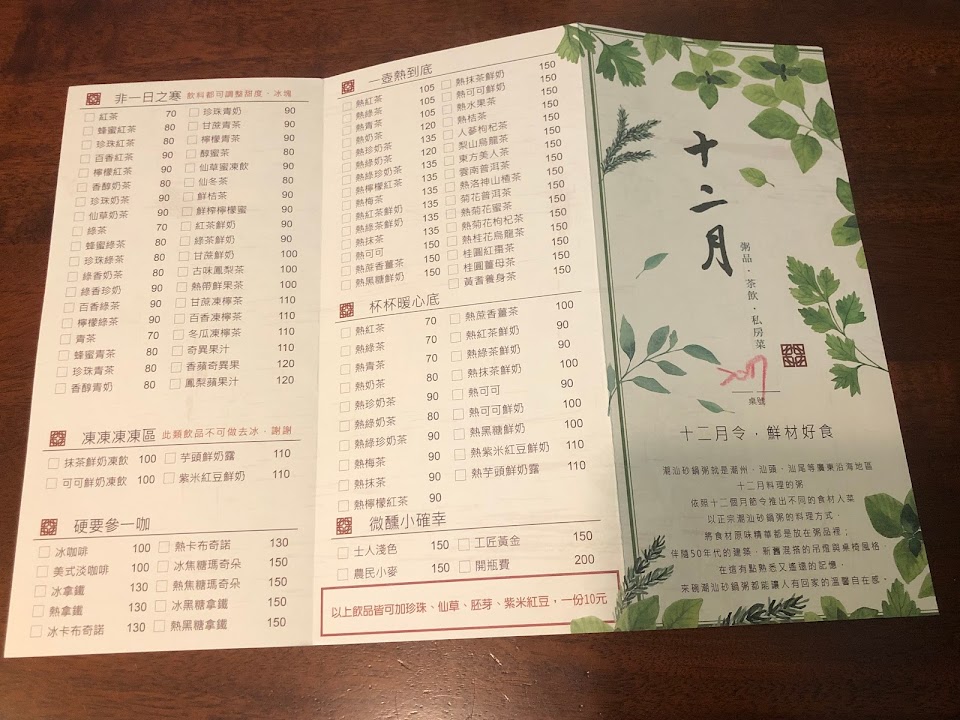 非一日之寒 飲料都可調整甜度、冰塊
紅茶 70
蜂蜜紅茶 80
珍珠紅茶 80
百香紅茶 90
檸檬紅茶 90
香醇奶茶 80
珍珠奶茶 90
仙草奶茶 90
綠茶 70
蜂蜜綠茶 80
珍珠綠茶 80
綠香奶茶 80
綠香珍奶 90
百香綠茶 90
檸檬綠茶 90
青茶 70
蜂蜜青茶 80
珍珠青茶 80
香醇青奶 80
珍珠青奶 90
甘蔗青茶 90
檸檬青茶 90
醇蜜茶 80
仙草蜜凍飲 90
仙冬茶 80
鮮桔茶 90
鮮榨檸檬蜜 90
紅茶鮮奶 90
綠茶鮮奶 90
甘蔗鮮奶 100
古味鳳梨茶 100
熱帶鮮果茶 100
甘蔗凍檸茶 110
百香凍檸茶 110
冬瓜凍檸茶 110
奇異果汁 110
香蘋奇異果 120
鳳梨蘋果汁 120
凍凍凍凍區 此類飲品不可做去冰、謝謝
抹茶鮮奶凍飲 100
可可鮮奶凍飲 100
芋頭鮮奶露 110
紫米紅豆鮮奶 110
硬要參一咖
冰咖啡 100
美式淡咖啡 100
冰拿鐵 130
熱拿鐵 130
冰卡布奇諾 130
熱卡布奇諾 130
冰焦糖瑪奇朵 150
熱焦糖瑪奇朵 150
冰黑糖拿鐵 150
熱黑糖拿鐵 150
一壺熱到底
熱紅茶 105
熱綠茶 105
熱青茶 105
熱奶茶 120
熱珍奶茶 135
熱綠奶茶 120
熱綠珍奶茶 135
熱檸檬紅茶 135
熱梅茶 135
熱紅茶鮮奶 135
熱綠茶鮮奶 135
熱抹茶 135
熱可可 150
熱蔗香薑茶 150
熱黑糖鮮奶 150
熱抹茶鮮奶 150
熱可可鮮奶 150
熱水果茶 150
熱桔茶 150
人蔘枸杞茶 150
梨山烏龍茶 150
東方美人茶 150
雲南普洱茶 150
熱洛神山楂茶 150
菊花普洱茶 150
熱菊花蜜茶 150
熱菊花枸杞茶 150
熱桂花烏龍茶 150
桂圓紅棗茶 150
桂圓薑母茶 150
黃耆養身茶 150
杯杯暖心底
熱紅茶 70
熱綠茶 70
熱青茶 70
熱奶茶 80
熱珍奶茶 90
熱綠奶茶 80
熱綠珍奶茶 90
熱梅茶 90
熱抹茶 90
熱檸檬紅茶 90
熱蔗香薑茶 100
熱紅茶鮮奶 90
熱綠茶鮮奶 90
熱抹茶鮮奶 100
熱可可 90
熱可可鮮奶 100
熱黑糖鮮奶 100
熱紫米紅豆鮮奶 110
熱芋頭鮮奶露 110
微醺小確幸
士人淺色 150
農民小麥 150
工匠黃金 150
開瓶費 200
以上飲品皆可加珍珠、仙草、胚芽、紫米紅豆，一份10元
十二月
粥品．茶飲．私房菜
桌號
十二月令，鮮材好食
潮汕砂鍋粥就是潮州、汕頭、汕尾等廣東沿海地區
十二月料理的粥
依照十二個月節令推出不同的食材入菜
以正宗潮汕砂鍋粥的料理方式，
將食材原味精華都是放在粥品裡；
伴隨50年代的建築，新舊混搭的吊燈與桌椅風格，
在這有點熟悉又遙遠的記憶，
來碗潮汕砂鍋粥都能讓人有回家的溫馨自在感。